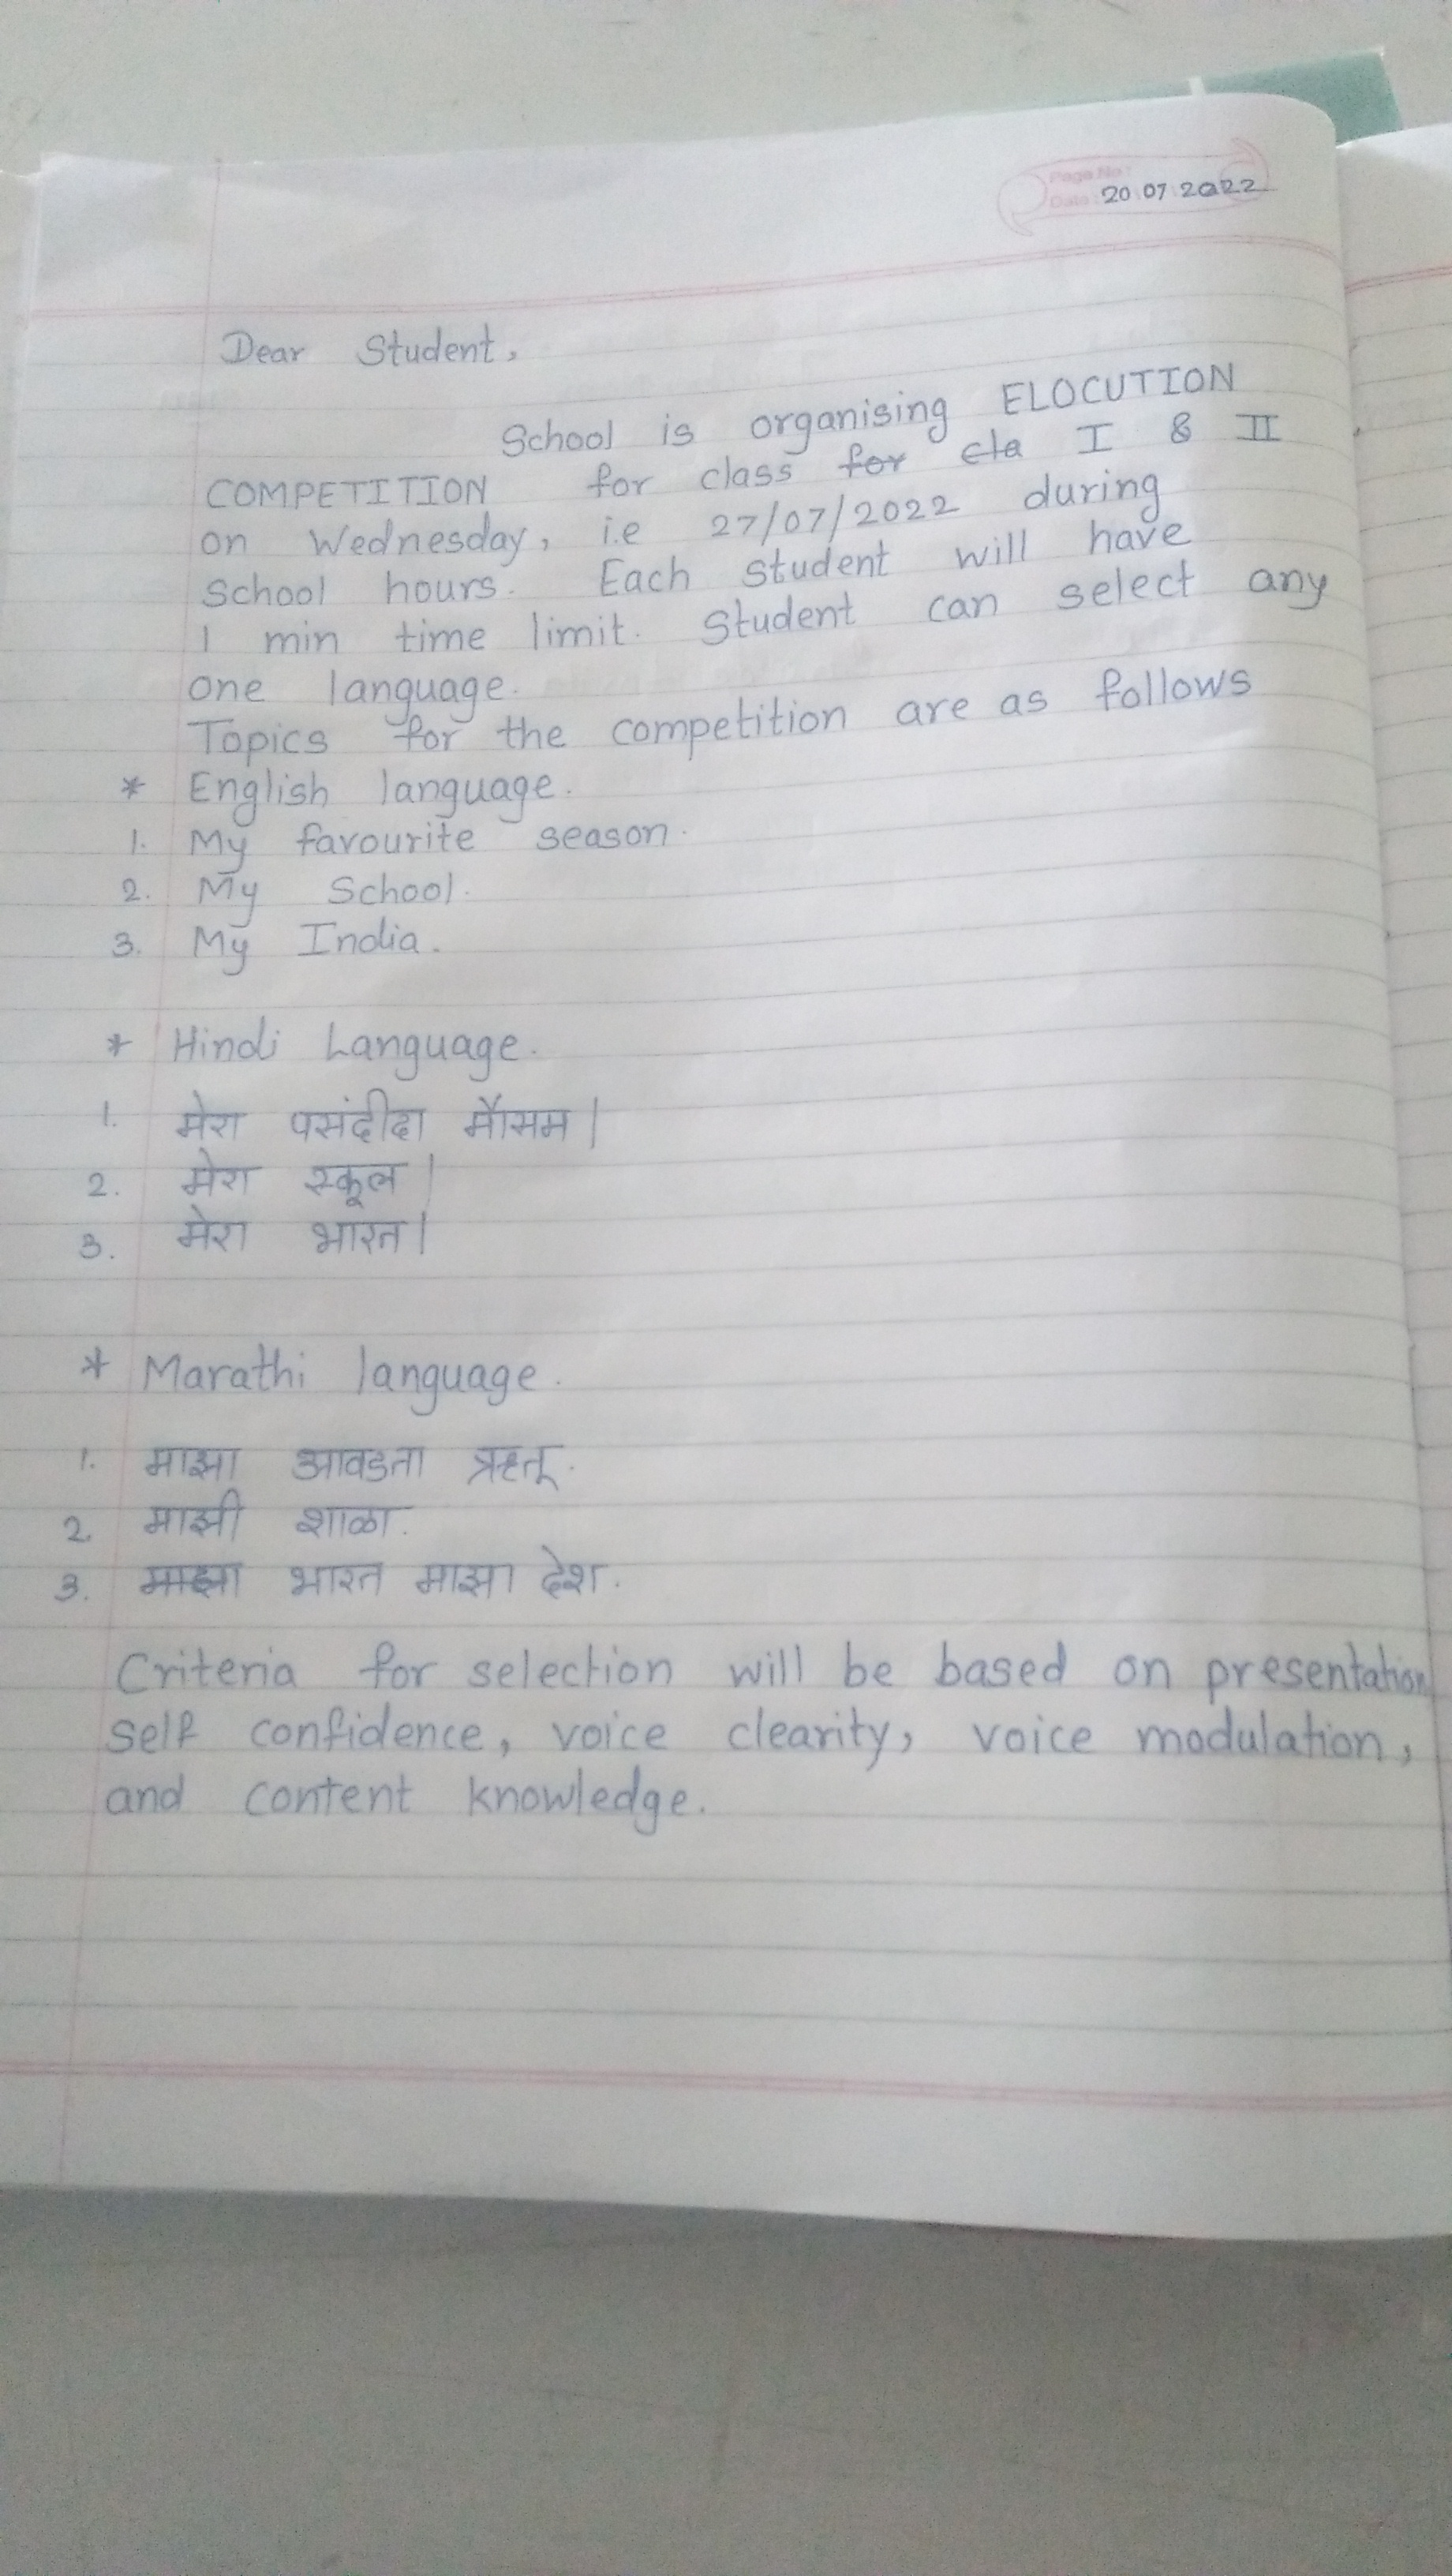 Page No :
Date : 20.07.2022
Dear Student,
School is organising ELOCUTION
COMPETITION for class for cla I & II
on Wednesday, i.e 27/07/2022 during
School hours. Each student will have
1 min time limit. Student can select any
one language.
Topics for the competition are as follows
* English language.
1. My favourite season.
2. My School.
3. My India.
* Hindi Language.
1. मेरा पसंदीदा मौसम|
2. मेरा स्कूल|
3. मेरा भारत|
* Marathi language.
1. माझा आवडता ऋतू.
2. माझी शाळा.
3. माझा भारत माझा देश.
Criteria for selection will be based on presentation
self confidence, voice clearity, voice modulation,
and content knowledge.